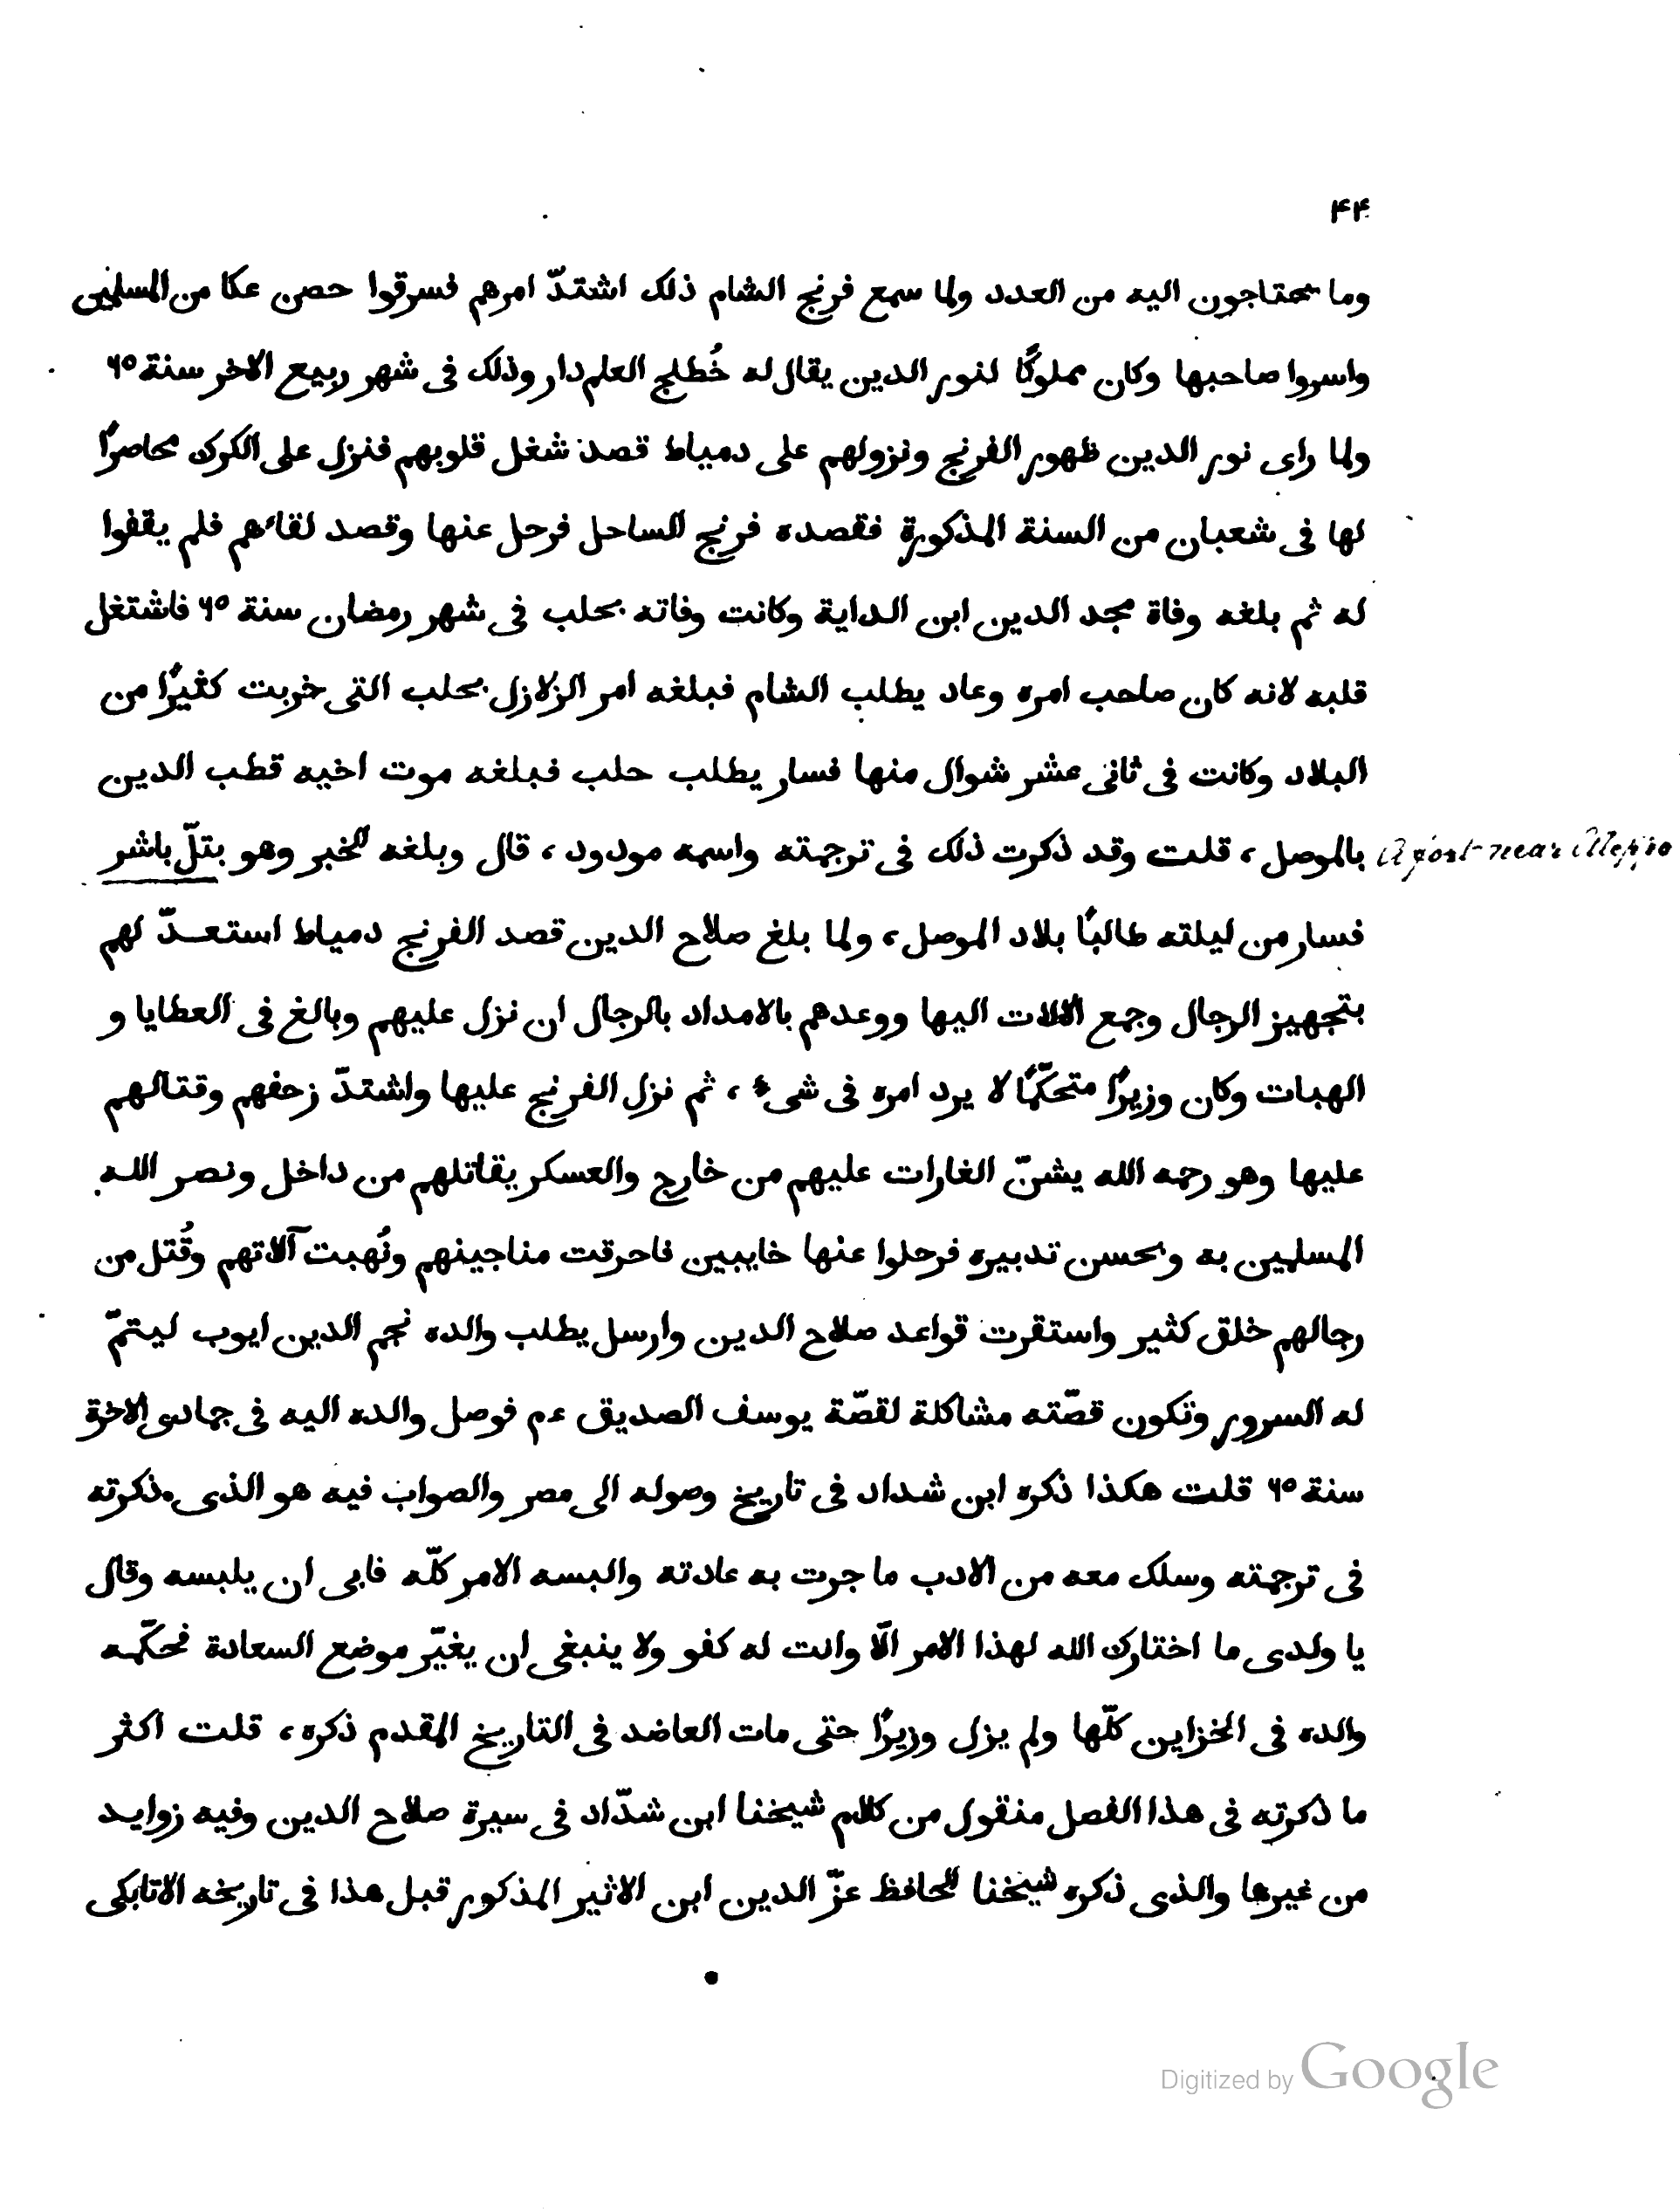 ۴۴
وما يحتاجون اليه من العدد ولما سمع فرنج الشام ذلك اشتدّ امرهم فسرقوا حصن عكا من المسلمين
واسروا صاحبها وكان مملوكًا لنور الدين يقال له خُطلج العلم دار وذلك فى شهر ربيع الاخر سنة ٦٥
ولما راى نور الدين ظهور الفرنج ونزولهم على دمياط قصد شغل قلوبهم فنزل على الكرك محاصرًا
لها فى شعبان من السنة المذكورة فقصده فرنج الساحل فرحل عنها وقصد لقاءهم فلم يقفوا
له ثم بلغه وفاة مجد الدين ابن الداية وكانت وفاته بحلب فى شهر رمضان سنة ٦٥ فاشتغل
قلبه لانه كان صاحب امره وعاد يطلب الشام فبلغه امر الزلازل بحلب التى خربت كثيرًا من
البلاد وكانت فى ثانى عشر شوال منها فسار يطلب حلب فبلغه موت اخيه قطب الدين
بالموصل ، قلت وقد ذكرت ذلك فى ترجمته واسمه مودود ، قال وبلغه الخبر وهو بتلّ باشر
A fort near Aleppo
فسار من ليلته طالبًا بلاد الموصل ، ولما بلغ صلاح الدين قصد الفرنج دمياط استعدّ لهم
بتجهيز الرجال وجمع الالات اليها ووعدهم بالامداد بالرجال ان نزل عليهم وبالغ فى العطايا و
الهبات وكان وزيرًا متحكّمًا لا يرد امره فى شىء ، ثم نزل الفرنج عليها واشتدّ زحفهم وقتالهم
عليها وهو رحمه الله يشنّ الغارات عليهم من خارج والعسكر يقاتلهم من داخل ونصر الله
المسلمين به وبحسن تدبيره فرحلوا عنها خايبين فاحرقت مناجينهم ونُهبت آلاتهم وقُتل من
رجالهم خلق كثير واستقرت قواعد صلاح الدين وارسل يطلب والده نجم الدين ايوب ليتمّ
له السرور وتكون قصّته مشاكلة لقصّة يوسف الصديق عم فوصل والده اليه فى جمادى الاخرة
سنة ٦٥ قلت هكذا ذكره ابن شداد فى تاريخ وصوله الى مصر والصواب فيه هو الذى ذكرته
فى ترجمته وسلك معه من الادب ما جرت به عادته والبسه الامر كلّه فابى ان يلبسه وقال
يا ولدى ما اختارك الله لهذا الامر الّا وانت له كفو ولا ينبغى ان يغيّر موضع السعادة فحكّمه
والده فى الخزاين كلّها ولم يزل وزيرًا حتى مات العاضد فى التاريخ المقدم ذكره ، قلت اكثر
ما ذكرته فى هذا الفصل منقول من كلام شيخنا ابن شدّاد فى سيرة صلاح الدين وفيه زوايد
من غيرها والذى ذكره شيخنا الحافظ عزّ الدين ابن الاثير المذكور قبل هذا فى تاريخه الاتابكى
Digitized by Google